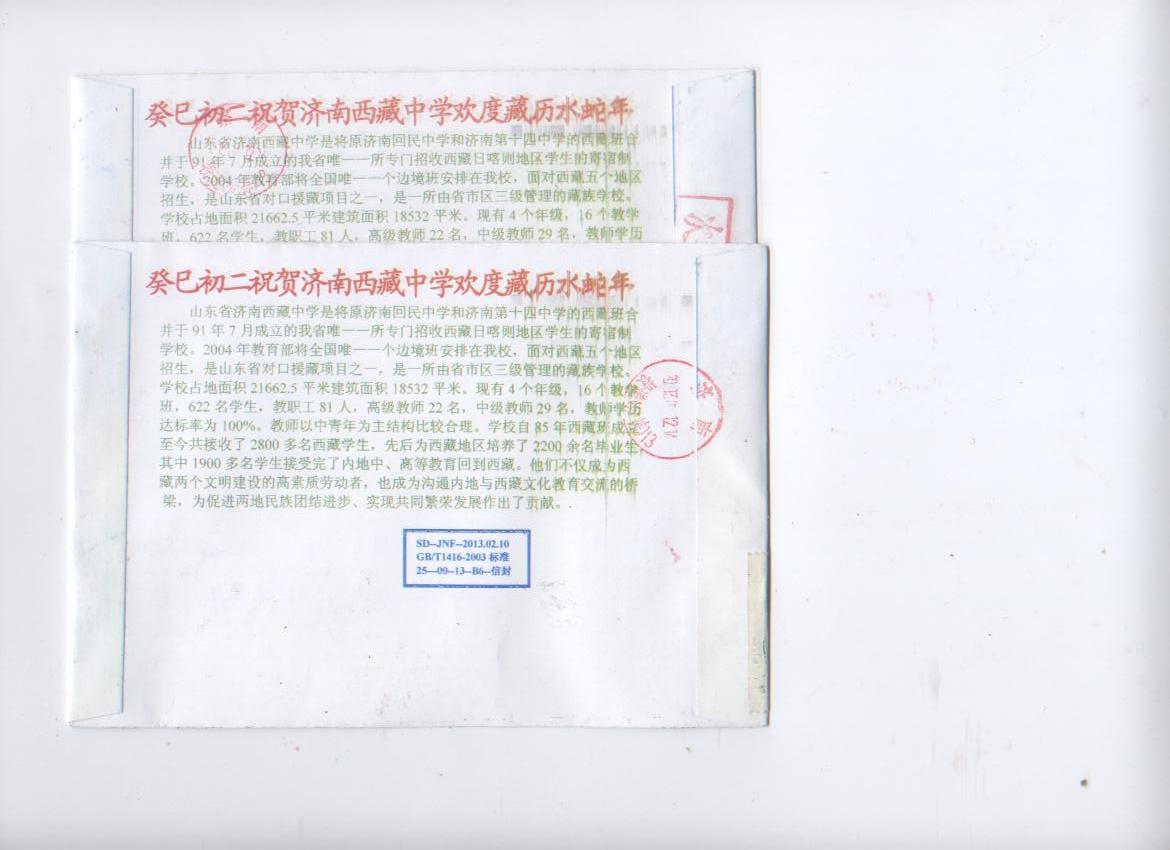 癸巳初二祝贺济南西藏中学欢度藏历水蛇年
山东省济南西藏中学是将原济南回民中学和济南第十四中学的西藏班合
并于 91 年 7 月成立的我省唯一一所专门招收西藏日喀则地区学生的寄宿制
学校。2004 年教育部将全国唯一一个边境班安排在我校，面对西藏五个地区
招生，是山东省对口援藏项目之一，是一所由省市区三级管理的藏族学校。
学校占地面积 21662.5 平米建筑面积 18532 平米。现有 4 个年级，16 个教学
班，622 名学生，教职工 81 人，高级教师 22 名，中级教师 29 名，教师学历
癸巳初二祝贺济南西藏中学欢度藏历水蛇年
山东省济南西藏中学是将原济南回民中学和济南第十四中学的西藏班合
并于 91 年 7 月成立的我省唯一一所专门招收西藏日喀则地区学生的寄宿制
学校。2004 年教育部将全国唯一一个边境班安排在我校，面对西藏五个地区
招生，是山东省对口援藏项目之一，是一所由省市区三级管理的藏族学校。
学校占地面积 21662.5 平米建筑面积 18532 平米。现有 4 个年级，16 个教学
班，622 名学生，教职工 81 人，高级教师 22 名，中级教师 29 名，教师学历
达标率为 100%。教师以中青年为主结构比较合理。学校自 85 年西藏班成立
至今共接收了 2800 多名西藏学生，先后为西藏地区培养了 2200 余名毕业生，
其中 1900 多名学生接受完了内地中、高等教育回到西藏。他们不仅成为西
藏两个文明建设的高素质劳动者，也成为沟通内地与西藏文化教育交流的桥
梁，为促进两地民族团结进步、实现共同繁荣发展作出了贡献。.
SD--JNF--2013.02.10
GB/T1416-2003 标准
25—00--13--B6--信封